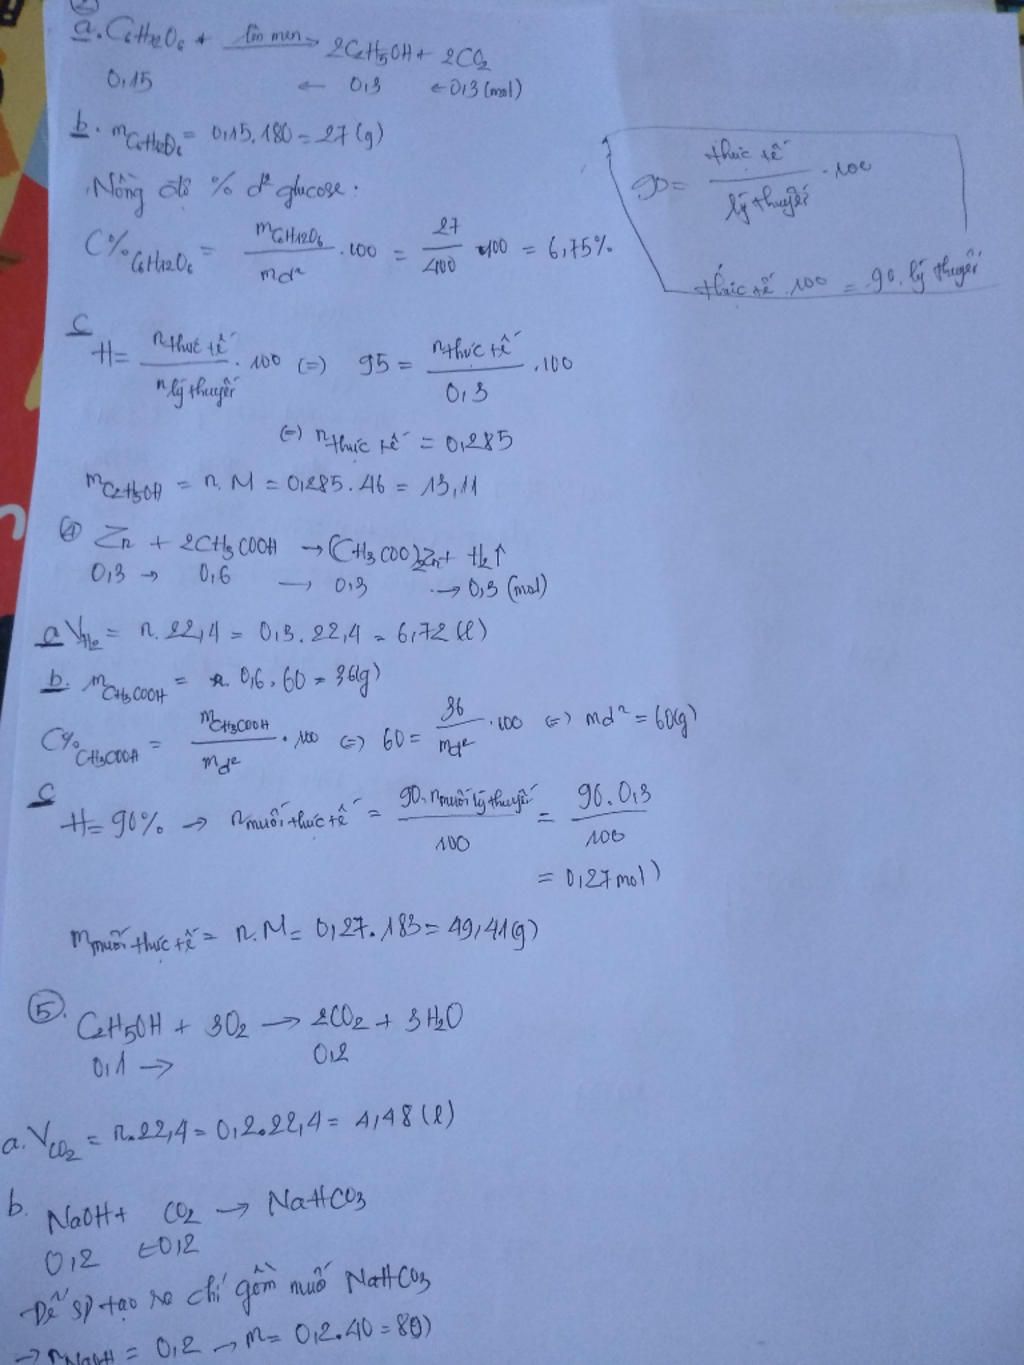 a. C6H12O6 + lên men → 2C2H5OH + 2CO2
0,15 ← 0,3 ← 0,3 (mol)
b. mC6H12O6 = 0,15.180 = 27 (g)
Nồng độ % d² glucose:
C%C6H12O6 = mC6H12O6 / md² .100 = 27/400 .100 = 6,75%
90 = thực tế / lý thuyết .100
thực tế .100 = 90. lý thuyết
c
H = nthực tế / nlý thuyết .100 (=) 95 = nthực tế / 0,3 .100
(=) nthực tế = 0,285
mC2H5OH = n.M = 0,285.46 = 13,11
④ Zn + 2CH3COOH → (CH3COO)2Zn + H2↑
0,3 → 0,6 → 0,3 → 0,3 (mol)
a VH2 = n.22,4 = 0,3.22,4 = 6,72 (l)
b. mCH3COOH = 0,6.60 = 36(g)
C%CH3COOH = mCH3COOH / md² .100 (=) 60 = 36/md² .100 (=) md² = 60(g)
c
H = 90% → nmuối thực tế = 90.nmuối lý thuyết / 100 = 90.0,3 / 100
= 0,27 mol)
mmuối thực tế = n.M = 0,27.183 = 49,41(g)
⑤. C2H5OH + 3O2 → 2CO2 + 3H2O
0,1 → 0,2
a. VCO2 = n.22,4 = 0,2.22,4 = 4,48 (l)
b. NaOH + CO2 → NaHCO3
0,2 ← 0,2
Để sp tạo ra chỉ gồm muố NaHCO3
→ nNaOH = 0,2 → m = 0,2.40 = 8g)